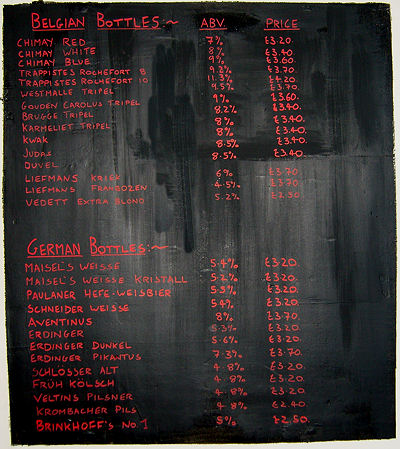 BELGIAN BOTTLES:~ ABV. PRICE
CHIMAY RED 7% £3.20
CHIMAY WHITE 8% £3.40
CHIMAY BLUE 9% £3.60
TRAPPISTES ROCHEFORT 8 9.2% £3.70
TRAPPISTES ROCHEFORT 10 11.3% £4.20
WESTMALLE TRIPEL 9.5% £3.70
GOUDEN CAROLUS TRIPEL 9% £3.60
BRUGGE TRIPEL 8.2% £3.40
KARMELIET TRIPEL 8% £3.40
KWAK 8% £3.40
JUDAS 8.5% £3.40
DUVEL 8.5% £3.40
LIEFMANS KRIEK 6% £3.70
LIEFMANS FRAMBOZEN 4.5% £3.70
VEDETT EXTRA BLOND 5.2% £2.50
GERMAN BOTTLES:~
MAISEL'S WEISSE 5.4% £3.20
MAISEL'S WEISSE KRISTALL 5.2% £3.20
PAULANER HEFE-WEISBIER 5.5% £3.20
SCHNEIDER WEISSE 5.4% £3.20
AVENTINUS 8% £3.70
ERDINGER 5.3% £3.20
ERDINGER DUNKEL 5.6% £3.20
ERDINGER PIKANTUS 7.3% £3.70
SCHLÖSSER ALT 4.8% £3.20
FRÜH KÖLSCH 4.8% £3.20
VELTINS PILSNER 4.8% £3.20
KROMBACHER PILS 4.8% £2.40
BRINKHOFF'S NO.1 5% £2.50